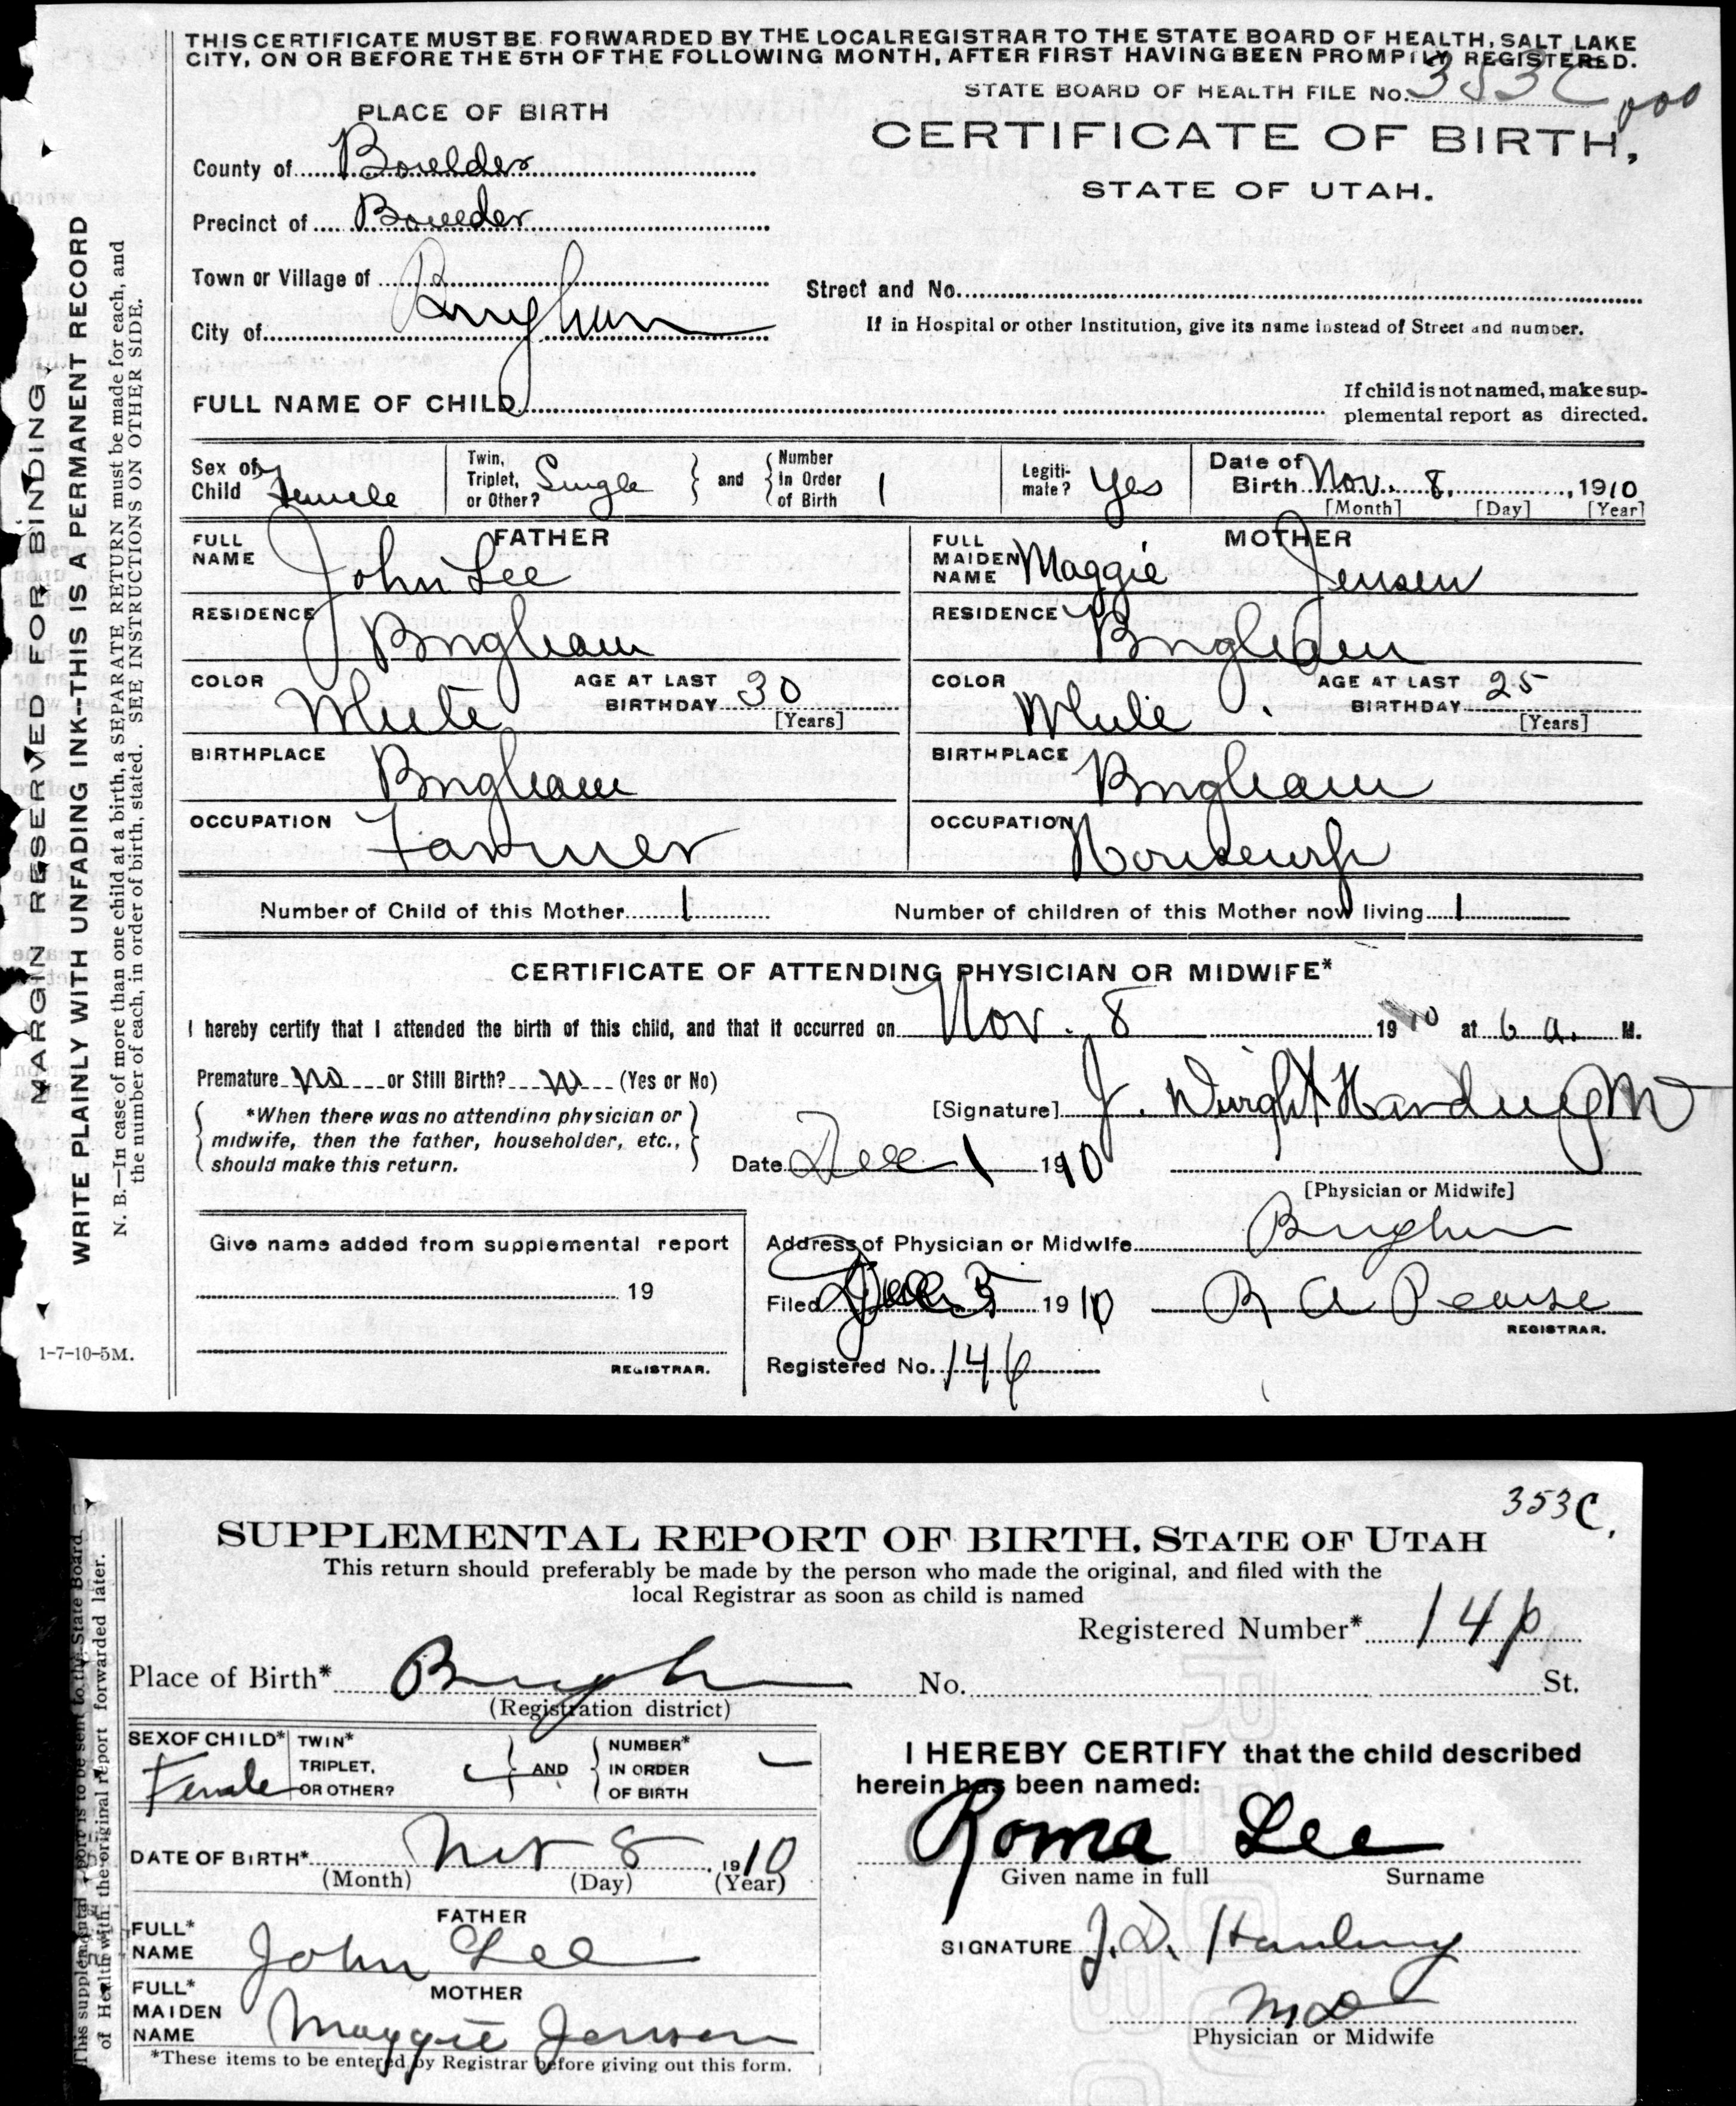 THIS CERTIFICATE MUST BE FORWARDED BY THE LOCAL REGISTRAR TO THE STATE BOARD OF HEALTH, SALT LAKE
CITY, ON OR BEFORE THE 5TH OF THE FOLLOWING MONTH, AFTER FIRST HAVING BEEN PROMPTLY REGISTERED.
STATE BOARD OF HEALTH FILE No. 353C
PLACE OF BIRTH
CERTIFICATE OF BIRTH,
STATE OF UTAH.
County of Boxelder
Precinct of Boxelder
Town or Village of Brigham
Street and No.
City of
If in Hospital or other Institution, give its name instead of Street and number.
FULL NAME OF CHILD
If child is not named, make sup-
plemental report as directed.
Sex of Child Female
Twin, Triplet, or Other? Single } and { Number in Order of Birth 1
Legiti-mate? Yes
Date of Birth Nov. 8, 1910
[Month] [Day] [Year]
FATHER
FULL NAME John Lee
MOTHER
FULL MAIDEN NAME Maggie Jensen
RESIDENCE Brigham
RESIDENCE Brigham
COLOR White AGE AT LAST BIRTHDAY 30 [Years]
COLOR White AGE AT LAST BIRTHDAY 25 [Years]
BIRTHPLACE Brigham
BIRTHPLACE Brigham
OCCUPATION Farmer
OCCUPATION Housewife
Number of Child of this Mother 1
Number of children of this Mother now living 1
CERTIFICATE OF ATTENDING PHYSICIAN OR MIDWIFE*
I hereby certify that I attended the birth of this child, and that it occurred on Nov. 8 1910 at 6 a. M.
Premature No or Still Birth? No (Yes or No)
*When there was no attending physician or
midwife, then the father, householder, etc.,
should make this return.
[Signature]
Date Dec 1 1910
[Physician or Midwife]
Address of Physician or Midwife Brigham
Give name added from supplemental report
19
REGISTRAR.
Filed Dec 5 1910 R A Pearse
REGISTRAR.
Registered No. 146
MARGIN RESERVED FOR BINDING.
WRITE PLAINLY WITH UNFADING INK--THIS IS A PERMANENT RECORD
N. B.—In case of more than one child at a birth, a SEPARATE RETURN must be made for each, and
the number of each, in order of birth, stated. SEE INSTRUCTIONS ON OTHER SIDE.
1-7-10-5M.
353C.
SUPPLEMENTAL REPORT OF BIRTH, STATE OF UTAH
This return should preferably be made by the person who made the original, and filed with the
local Registrar as soon as child is named
Registered Number* 146
Place of Birth* Brigham No. St.
(Registration district)
SEX OF CHILD* Female
TWIN* TRIPLET, OR OTHER? } AND { NUMBER* IN ORDER OF BIRTH
I HEREBY CERTIFY that the child described
herein has been named:
Roma Lee
Given name in full Surname
DATE OF BIRTH* Nov 8, 1910
(Month) (Day) (Year)
FATHER
FULL* NAME John Lee
SIGNATURE J. D. Harding
MD
Physician or Midwife
MOTHER
FULL* MAIDEN NAME Maggie Jensen
*These items to be entered by Registrar before giving out this form.
This supplemental report is to be sent to the State Board
of Health with the original report forwarded later.